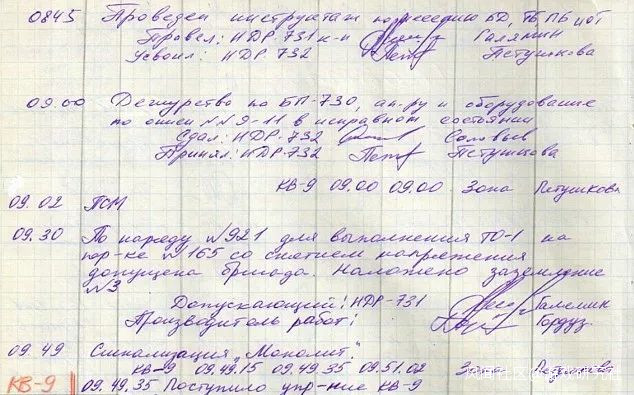 0845 Проведен инструктаж по несению БД, ТБ, ПБ
Провел: НДР-731 к-н Галямин
Усвоил: НДР 732 Петушкова
09.00 Дежурство по БП-730, ап-ру и оборудование
по описи №№9-11 в исправном состоянии
Сдал: НДР-732 Соловьев
Принял: НДР-732 Петушкова
КВ-9 09.00 09.00 - Зона Петушкова
09.02 ПСМ
09.30 По наряду №921 для выполнения ТО-1 на
№165 со снятием напряжения
допущена бригада. Наложено заземление
№3
Допускающий: НДР-731 Галямин
Производитель работ:
09.49 Сигнализация "Монолит".
КВ-9 09.49.15 09.49.35 09.51.02 Зона Петушкова
КВ-9 09.49.35 Поступило упр-ние КВ-9